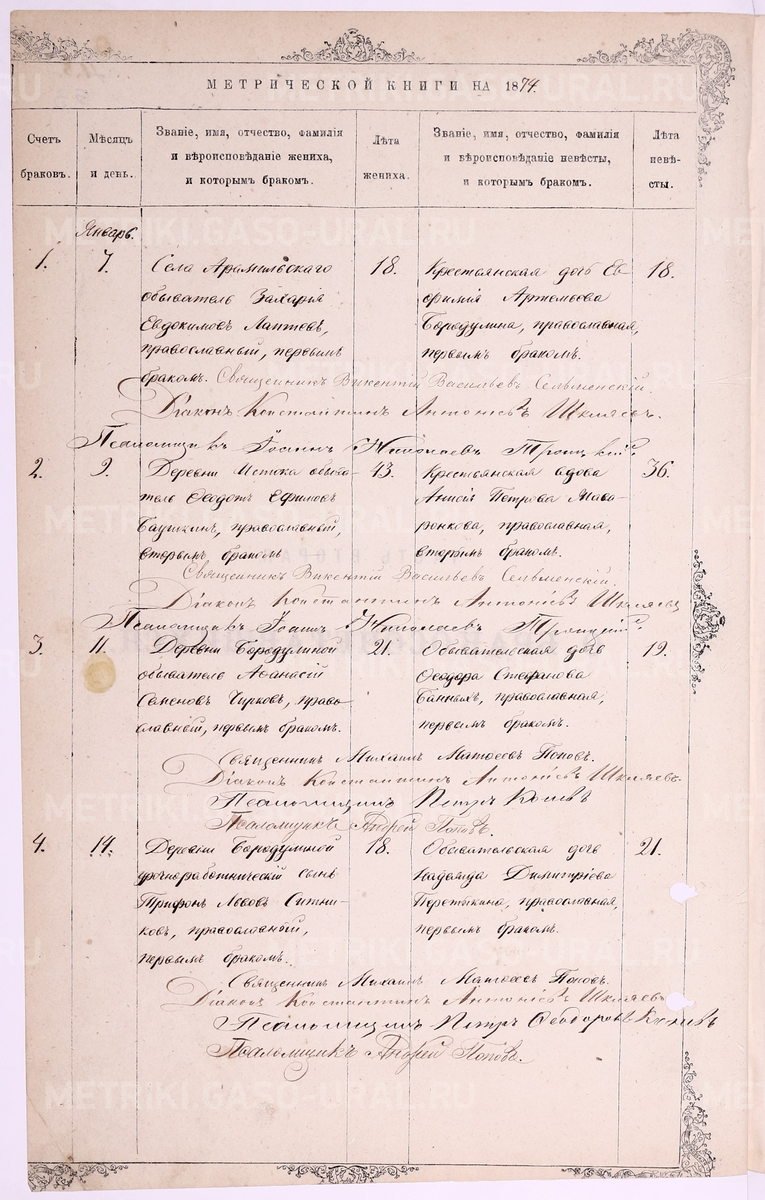 МЕТРИЧЕСКОЙ КНИГИ НА 1874
Счетъ браковъ.
Мѣсяцъ и день.
Званіе, имя, отчество, фамилія
и вѣроисповѣданіе жениха,
и которымъ бракомъ.
Лѣта жениха.
Званіе, имя, отчество, фамилія
и вѣроисповѣданіе невѣсты,
и которымъ бракомъ.
Лѣта невѣ-
сты.
Январь.
1. 7. Села Арамильскаго 18. Крестьянская дочь Ев- 18.
обыватель Захарія фимія Артемьева
Евдокимовъ Лаптевъ, Бородулина, православная,
православный, первымъ первымъ бракомъ.
бракомъ. Священникъ Викентій Васильевъ
Діаконъ Константинъ Антоніевъ Шкляевъ.
Псаломщикъ Іоаннъ Николаевъ Троицкій.
2. 9. Деревни Истока обыва- 43. Крестьянская вдова 36.
тель Ѳеодотъ Ефимовъ Анисія Петрова
православный, православная,
вторымъ бракомъ вторымъ бракомъ.
Священникъ Викентій Васильевъ
Діаконъ Константинъ Антоніевъ Шкляевъ
Псаломщикъ Іоаннъ Николаевъ Троицкій.
3. 11. Деревни Бородулиной 21. Обывательская дочь 19.
обыватель Аѳанасій Ѳеодора Стефанова
Семеновъ Чирковъ, право- Банныхъ, православная,
славный, первымъ бракомъ. первымъ бракомъ.
Священникъ Михаилъ Матѳеевъ Поповъ.
Діаконъ Константинъ Антоніевъ Шкляевъ
Псаломщикъ Петръ
Псаломщикъ Андрей Поповъ.
4. 14. Деревни Бородулиной 18. Обывательская дочь 21.
урочнорабочническій сынъ Надежда Димитріева
Трифонъ Львовъ Ситни- Перетыкина, православная,
ковъ, православный, первымъ бракомъ.
первымъ бракомъ.
Священникъ Михаилъ Матѳеевъ Поповъ.
Діаконъ Константинъ Антоніевъ Шкляевъ
Псаломщикъ Петръ Ѳеодоровъ
Псаломщикъ Андрей Поповъ.
METRIKI.GASO-URAL.RU